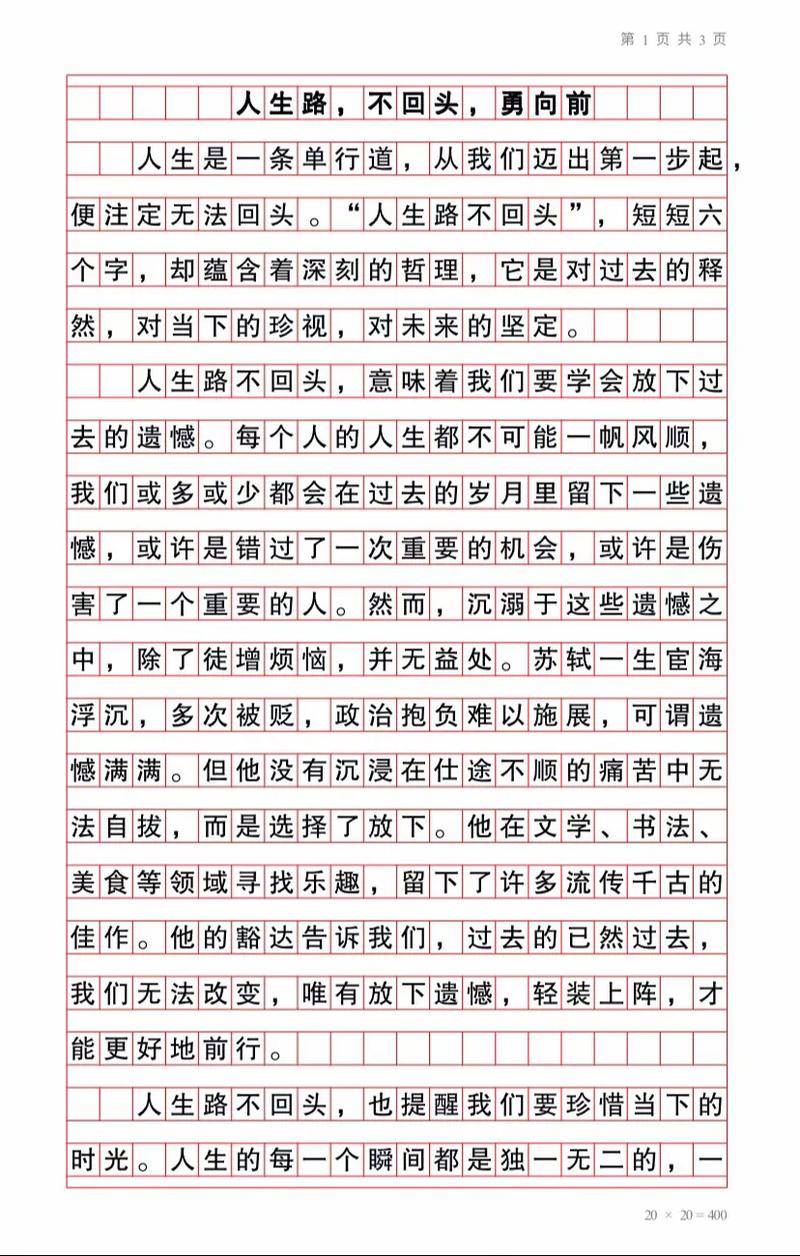 第 1 页 共 3 页
人生路，不回头，勇向前
人生是一条单行道，从我们迈出第一步起，
便注定无法回头。“人生路不回头”，短短六
个字，却蕴含着深刻的哲理，它是对过去的释
然，对当下的珍视，对未来的坚定。
人生路不回头，意味着我们要学会放下过
去的遗憾。每个人的人生都不可能一帆风顺，
我们或多或少都会在过去的岁月里留下一些遗
憾，或许是错过了一次重要的机会，或许是伤
害了一个重要的人。然而，沉溺于这些遗憾之
中，除了徒增烦恼，并无益处。苏轼一生宦海
浮沉，多次被贬，政治抱负难以施展，可谓遗
憾满满。但他没有沉浸在仕途不顺的痛苦中无
法自拔，而是选择了放下。他在文学、书法、
美食等领域寻找乐趣，留下了许多流传千古的
佳作。他的豁达告诉我们，过去的已然过去，
我们无法改变，唯有放下遗憾，轻装上阵，才
能更好地前行。
人生路不回头，也提醒我们要珍惜当下的
时光。人生的每一个瞬间都是独一无二的，一
20 × 20 = 400